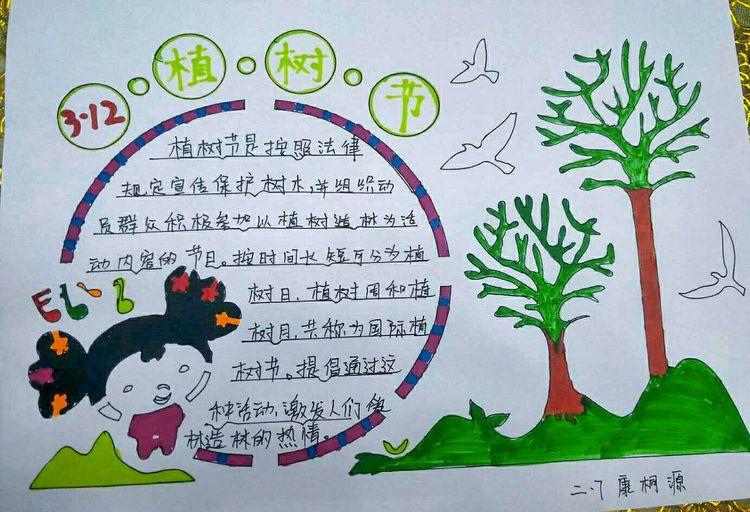 3.12 植树节
植树节是按照法律
规定宣传保护树木,并组织动
员群众积极参加以植树造林为活
动内容的节日。按时间长短可分为植
树日、植树周和植
树月,共称为国际植
树节。提倡通过这
种活动,激发人们爱
林造林的热情。
二.7 康桐源